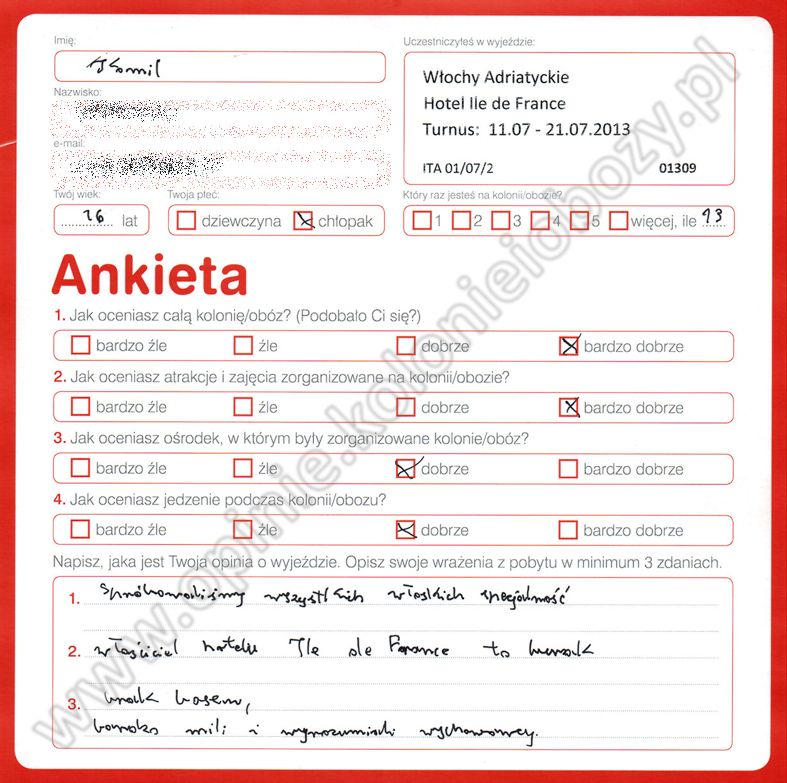 Imię:
Kamil
Nazwisko:
e-mail:
Twój wiek:
16 lat
Twoja płeć:
dziewczyna chłopak
Uczestniczyłeś w wyjeździe:
Włochy Adriatyckie
Hotel Ile de France
Turnus: 11.07 - 21.07.2013
ITA 01/07/2 01309
Który raz jesteś na kolonii/obozie?
1 2 3 4 5 więcej, ile 13
Ankieta
1. Jak oceniasz całą kolonię/obóz? (Podobało Ci się?)
bardzo źle źle dobrze bardzo dobrze
2. Jak oceniasz atrakcje i zajęcia zorganizowane na kolonii/obozie?
bardzo źle źle dobrze bardzo dobrze
3. Jak oceniasz ośrodek, w którym były zorganizowane kolonie/obóz?
bardzo źle źle dobrze bardzo dobrze
4. Jak oceniasz jedzenie podczas kolonii/obozu?
bardzo źle źle dobrze bardzo dobrze
Napisz, jaka jest Twoja opinia o wyjeździe. Opisz swoje wrażenia z pobytu w minimum 3 zdaniach.
1. Spróbowaliśmy wszystkich włoskich specjalność
2. właściciel hotelu Ile de France to burak
3. brak basenu,
bardzo mili i wyrozumiali wychowawcy.
www.opinie.kolonieiobozy.pl